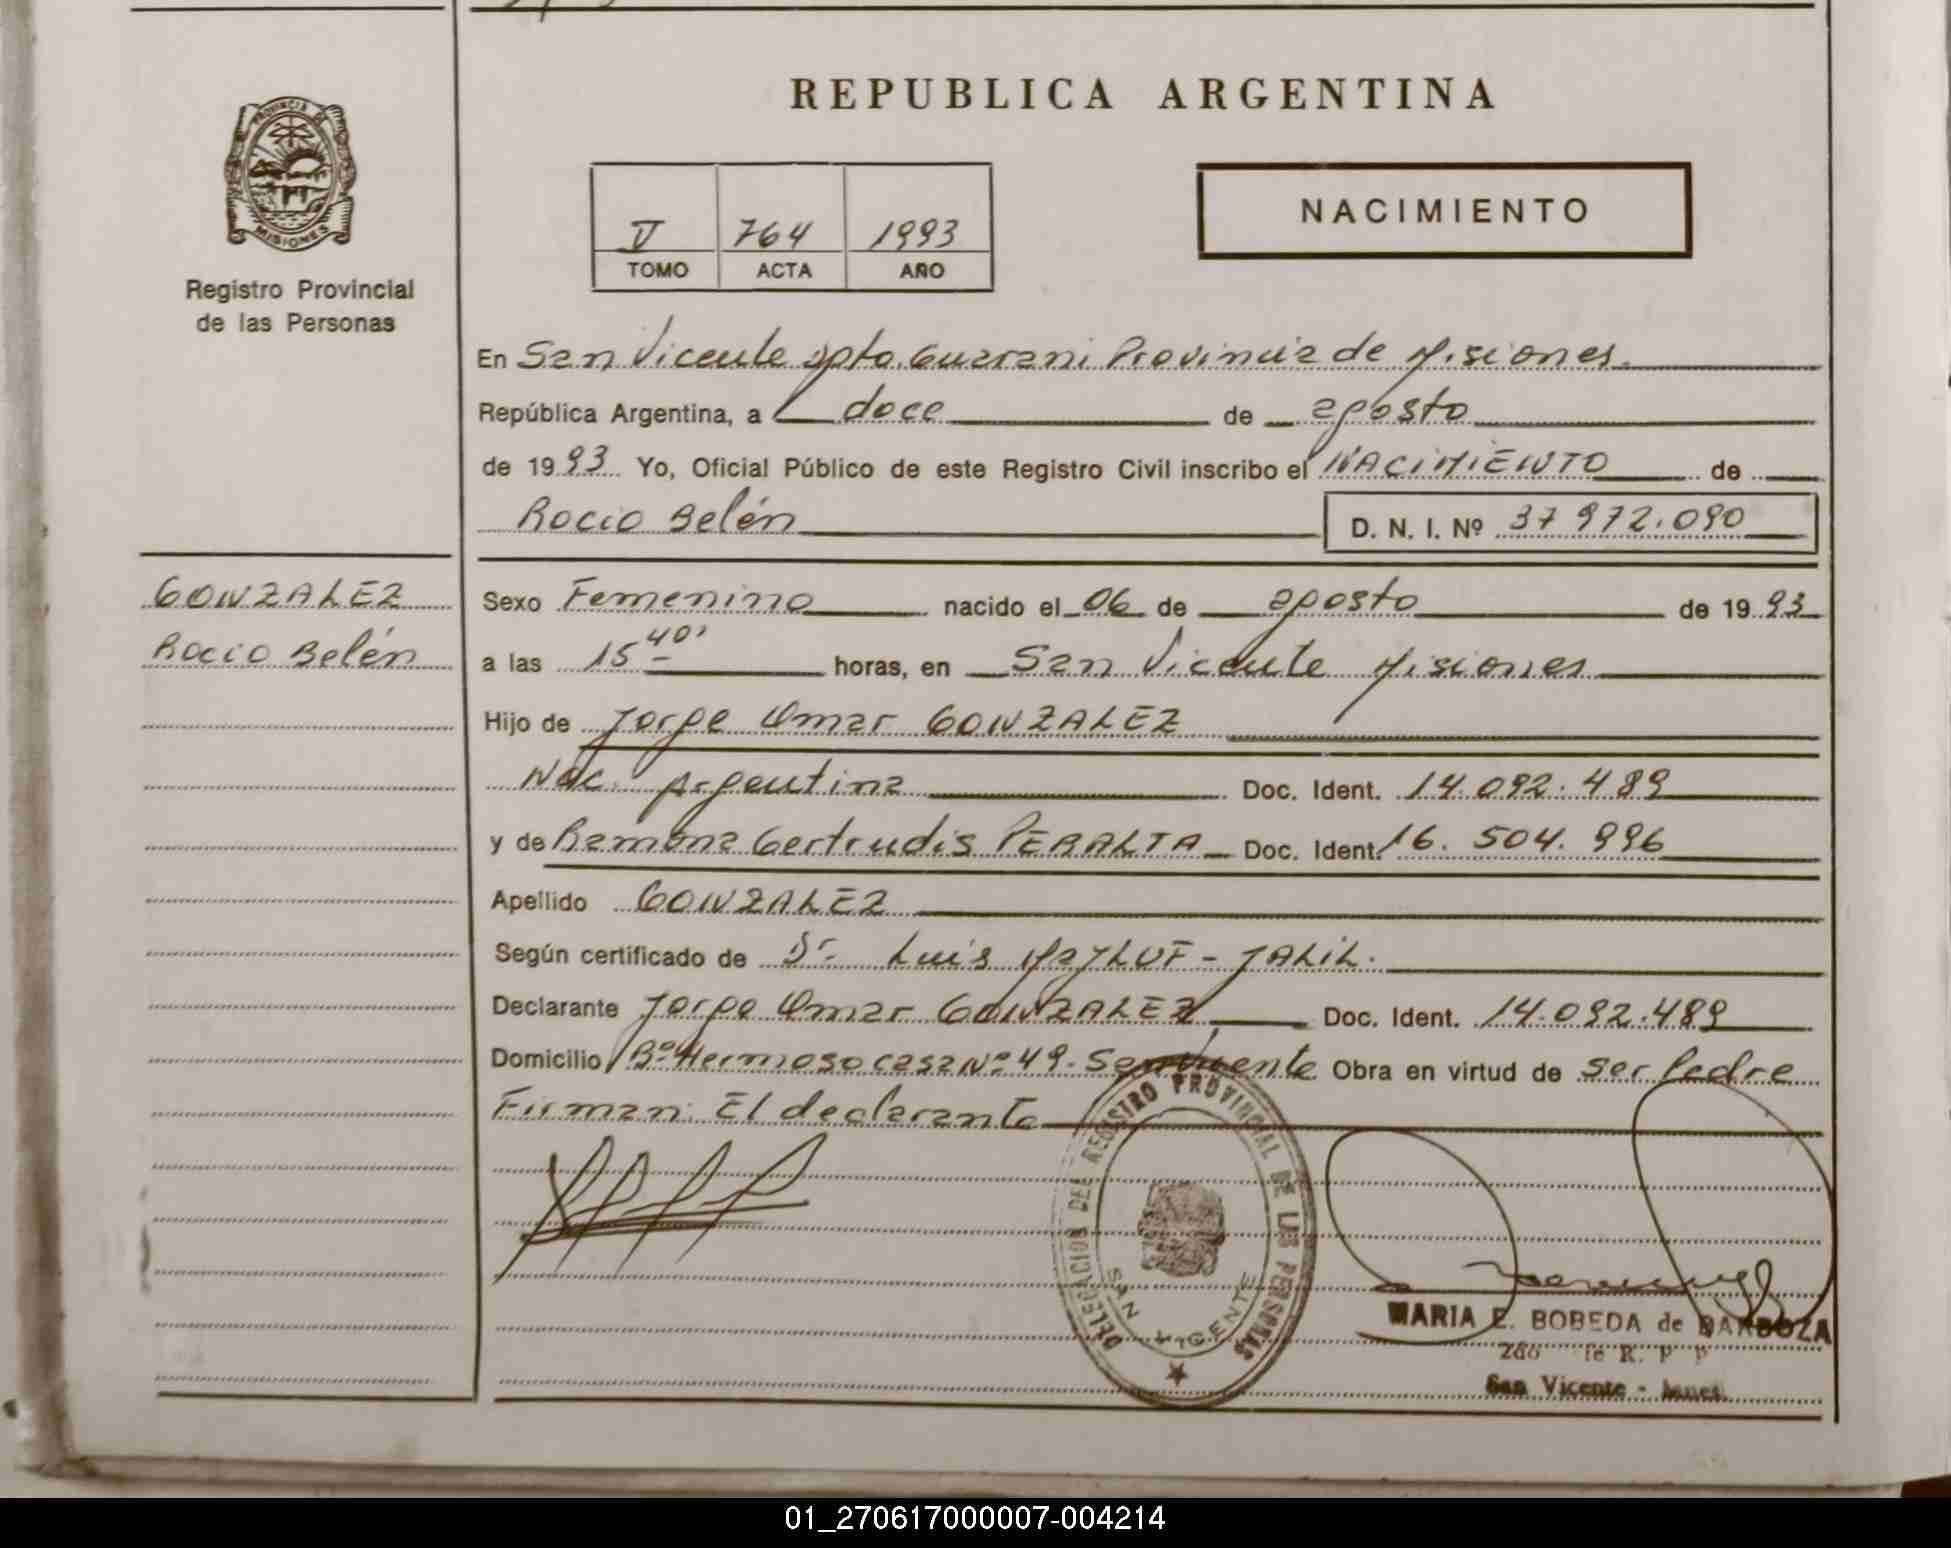 REPUBLICA ARGENTINA
PROVINCIA DE
MISIONES
Registro Provincial
de las Personas
V 764 1993
TOMO ACTA AÑO
NACIMIENTO
En San Vicente Dpto. Guarani Provincia de Misiones.
República Argentina, a doce de agosto
de 1993 Yo, Oficial Público de este Registro Civil inscribo el NACIMIENTO de
Rocio Belén D. N. I. Nº 37 972.090
GONZALEZ
Rocio Belén
Sexo Femenino nacido el 06 de agosto de 1993
a las 15 40' horas, en San Vicente Misiones
Hijo de Jorge Omar GONZALEZ
Nac. Argentina Doc. Ident. 14.092.489
y de Ramona Gertrudis PERALTA Doc. Ident. 16.504.996
Apellido GONZALEZ
Según certificado de Dr. Luis MaYLUF - JALIL.
Declarante Jorge Omar GONZALEZ Doc. Ident. 14.092.489
Domicilio Bº Hermoso casa Nº 49. San Vicente Obra en virtud de ser Padre
Firman: El declarante
DELEGACION DEL REGISTRO PROVINCIAL DE LAS PERSONAS
SAN VICENTE
MARIA E. BOBEDA de BARBOZA
R. P. P.
San Vicente -
01_270617000007-004214